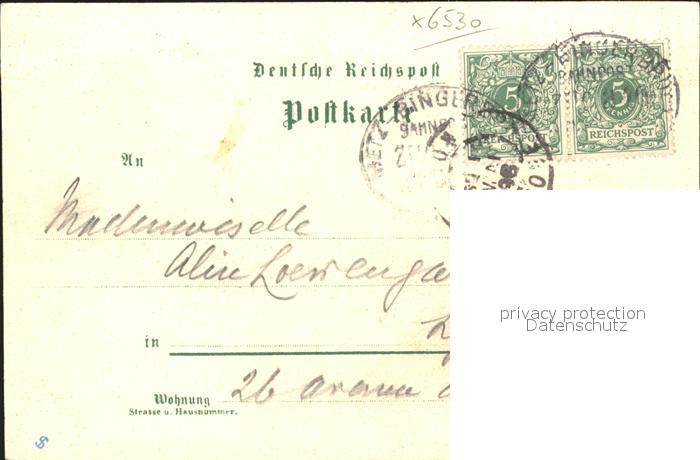 x6530
Deutsche Reichspost
Postkarte
5
REICHSPOST
5
REICHSPOST
METZ BINGER
BAHNPOST
BAHNPOST
An
Mademoiselle
Aline
in
26 Avenue
Wohnung
Strasse u. Hausnummer.
privacy protection
Datenschutz